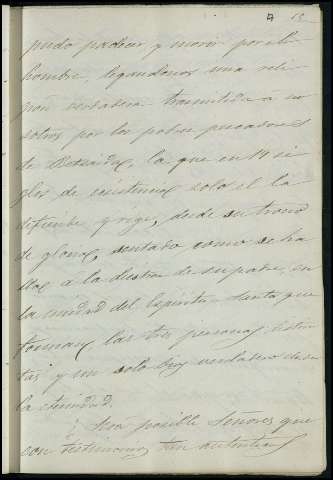 13
pudo padecer y morir por el
hombre, legandonos una reli
gion verdadera trasmitida á no
sotros por los pobres pescadores
de Betsaida, la que en 19 si
glos de existencia solo el la
defiende y rige, desde su trono
de gloria, sentado como se ha
lla á la diestra de su padre, en
la unidad del Espíritu Santo que
forman las tres personas distin
tas y un solo Dios verdadero desde
la eternidad.
¿Será posible Señores que
con testimonios tan autenticos